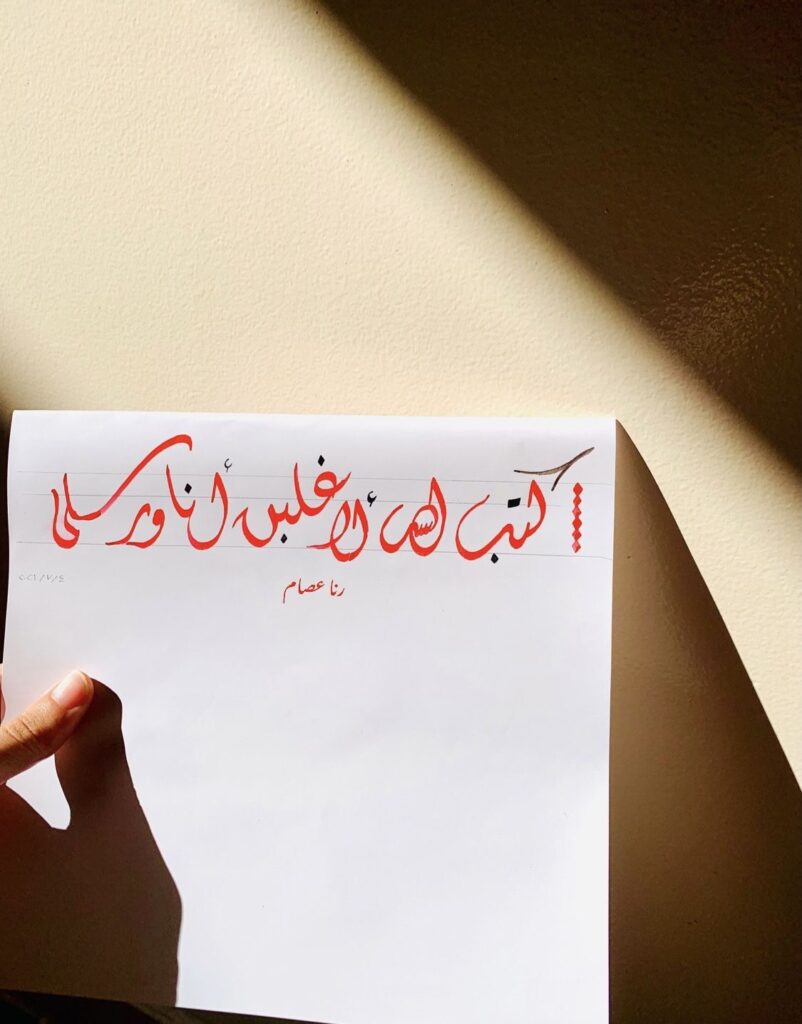 كتب الله لأغلبن أنا ورسلي
رنا عصام
٢٠٢١/٧/٤